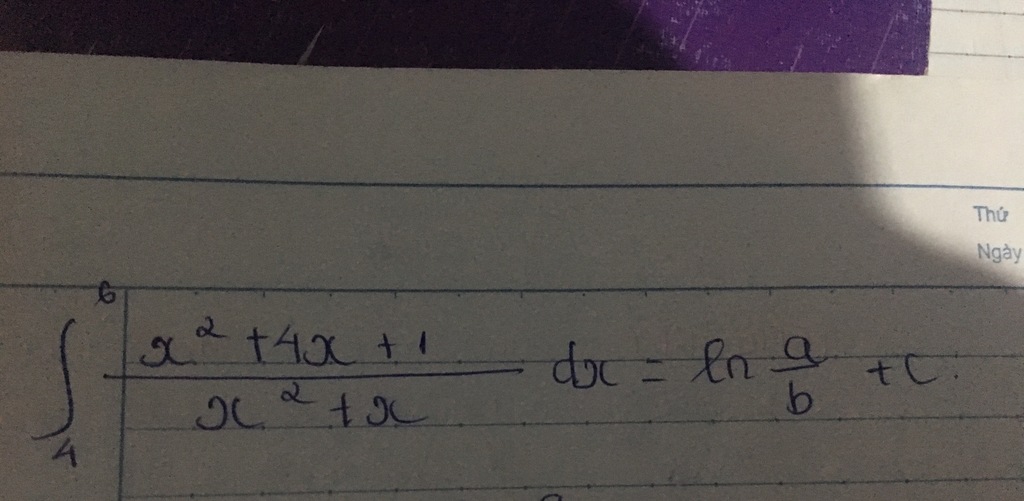 Thứ
Ngày
∫₄⁶ (x² + 4x + 1)/(x² + x) dx = ln a/b + c.